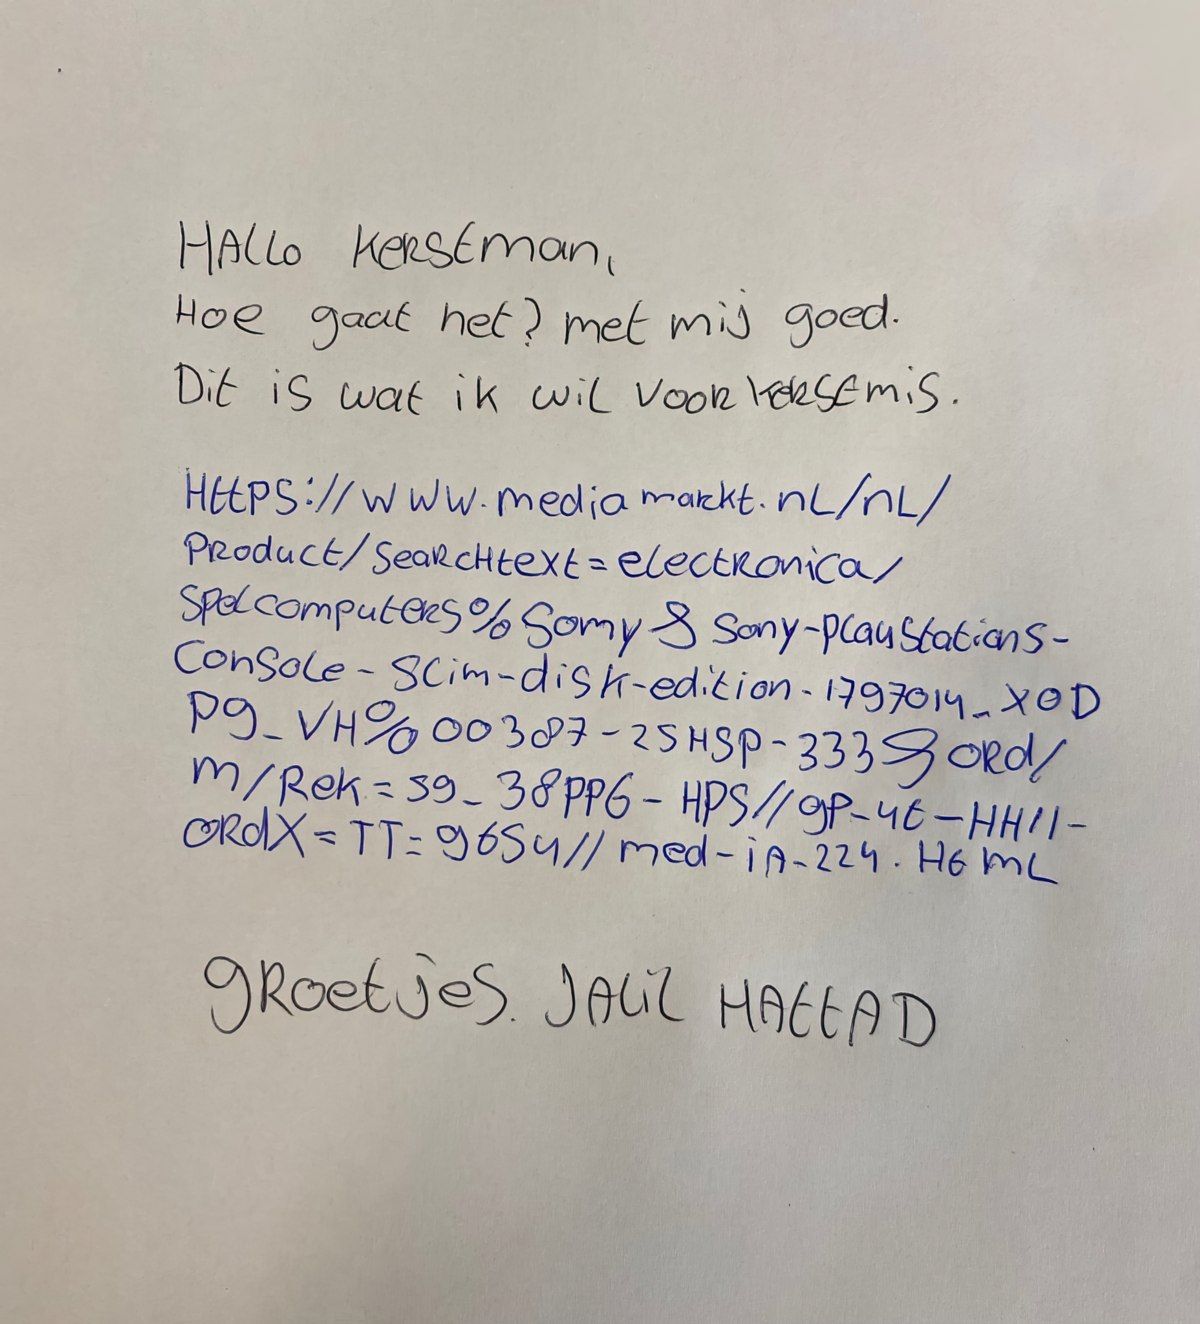 Hallo Kerstman,
Hoe gaat het? met mij goed.
Dit is wat ik wil voor kersemis.
Https://www.mediamarkt.nl/nl/
Product/searchtext=electronica/
spelcomputers%Somy&Sony-playstations-
Console-slim-disk-edition-1797014_XOD
pg_VH%00387-25HSP-333&ord/
m/Rek=sg_38PPG-HPS//gp-4t-HH11-
ordX=TT=96S4//med-iA-224.Html
groetjes. Jalil Hattad